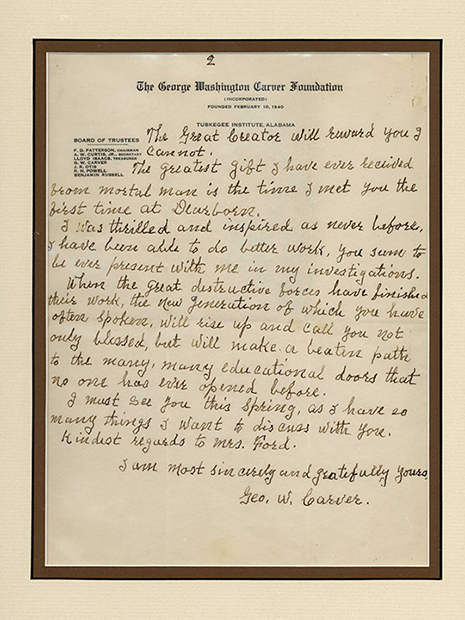 2
The George Washington Carver Foundation
(INCORPORATED)
FOUNDED FEBRUARY 10, 1940
TUSKEGEE INSTITUTE, ALABAMA
BOARD OF TRUSTEES
F. D. PATTERSON, CHAIRMAN
A. W. CURTIS, JR., SECRETARY
LLOYD ISAACS, TREASURER
G. W. CARVER
J. R. OTIS
R. H. POWELL
BENJAMIN RUSSELL
The Great Creator will reward you I
cannot.
The greatest gift I have ever received
from mortal man is the time I met you the
first time at Dearborn.
I was thrilled and inspired as never before,
I have been able to do better work, you seem to
be ever present with me in my investigations.
When the great destructive forces have finished
their work, the new generation of which you have
often spoken, will rise up and call you not
only blessed, but will make a beaten path
to the many, many educational doors that
no one has ever opened before.
I must see you this Spring, as I have so
many things I want to discuss with you.
Kindest regards to Mrs. Ford.
I am most sincerely and gratefully yours,
Geo. W. Carver.